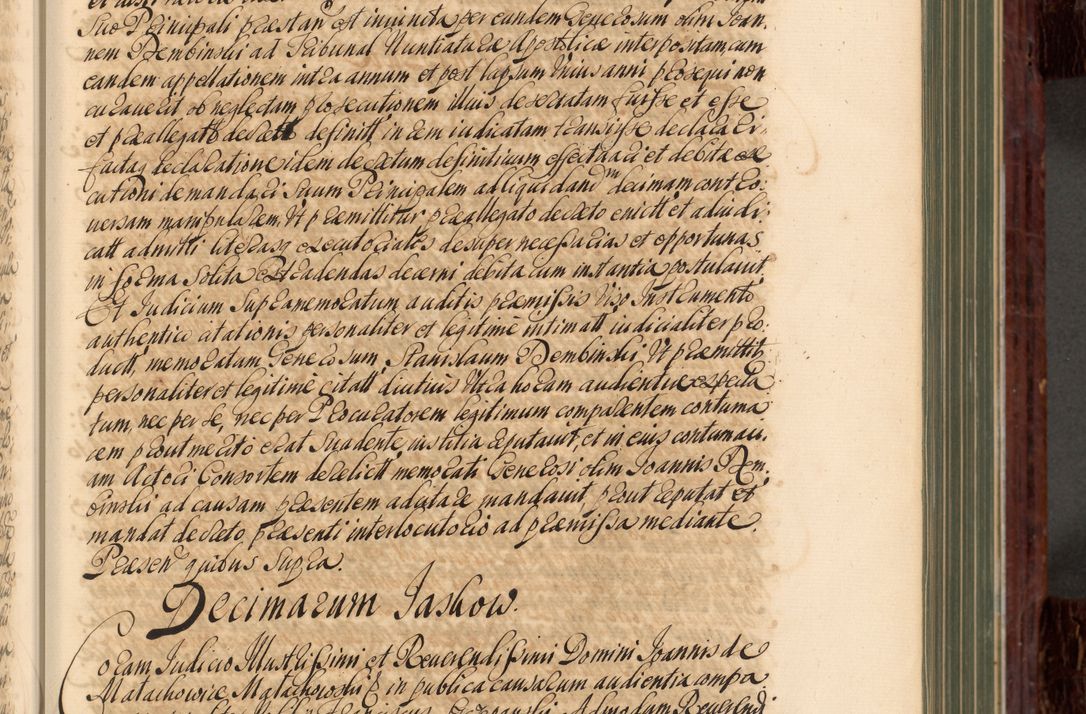 Suo Principali praestan et in iuncta per eundem Generosum olim Joan-
nem Dembinski ad Tribunal Nuntiaturae Apostolicae interpositam, cum
eandem appellationem intra annum et post lapsum Unius anni prosequi non
curaverit ob neglectam prosecutionem illius desertatam fuisse et esse
et praeallegatt decrett definitt in rem iudicatam transiisse declarari.
factaq declaratione idem decretum definitivum effectuari et debitae exe
cutioni demandari suum Principalem ad liquidand decimam contro-
versam manipularem, Ut praemittitur praeallegato decreto evictt et adiudi-
catt admitti literasq executoriales desuper necessarias et opportunas
in forma solita extradendas decerni debita cum instantia postulavit.
Et Judicium Supramemoratum auditis praemissis Viso Instrumento
authentico citationis personaliter et legitime intimatt iudicialiter pro-
ductt, memoratam Generosum Stanislaum Dembinski Ut praemittit
personaliter et legitime citatt diutius Ultra horam audientiae expecta
tum, nec per se, nec per Procuratorem legitimum comparentem contuma
cem prout merito erat Suadente iustitia reputavit, et in eius contumaci-
am Actori Consortem derelictt memorati Generosi olim Joannis Dem-
binski ad causam praesentem adcitare mandavit prout reputat et
mandat decreto praesenti interlocutorio ad praemissa mediante.
Praesen quibus supra.
Decimarum Jaskow.
Coram Judicio Illustrissimi et Reverendissimi Domini Joannis de
Malachowice Malachowski in publica causarum audientia compa
Admodum Reverend